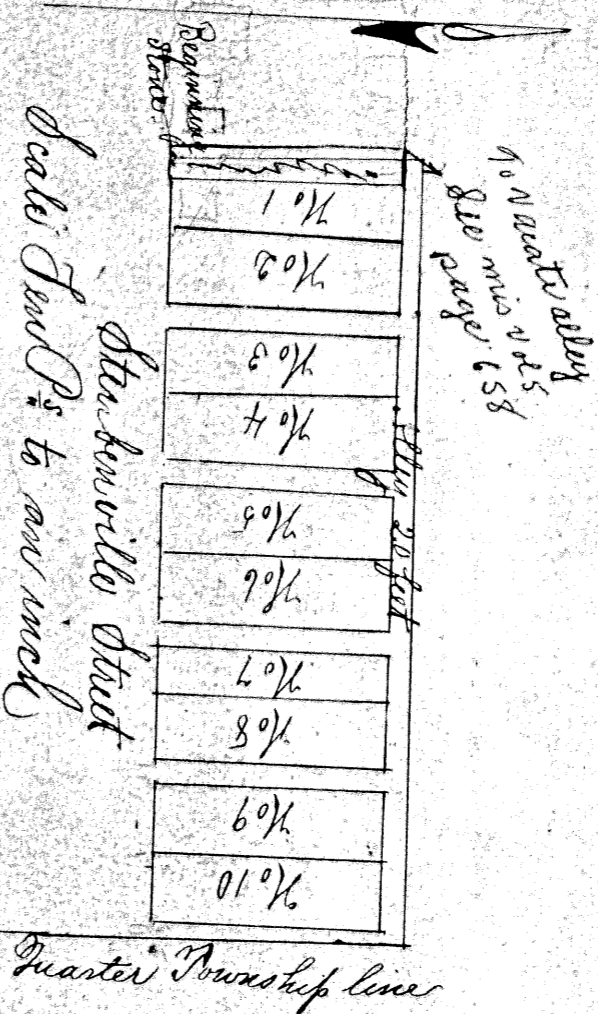 To vacate alley
See mis vol 5
page 658
Beginning
Stone
No 1
No 2
No 3
No 4
No 5
No 6
No 7
No 8
No 9
No 10
Alley 20 feet
Steubenville Street
Scale: Ten Ps. to an inch
Quarter Township line